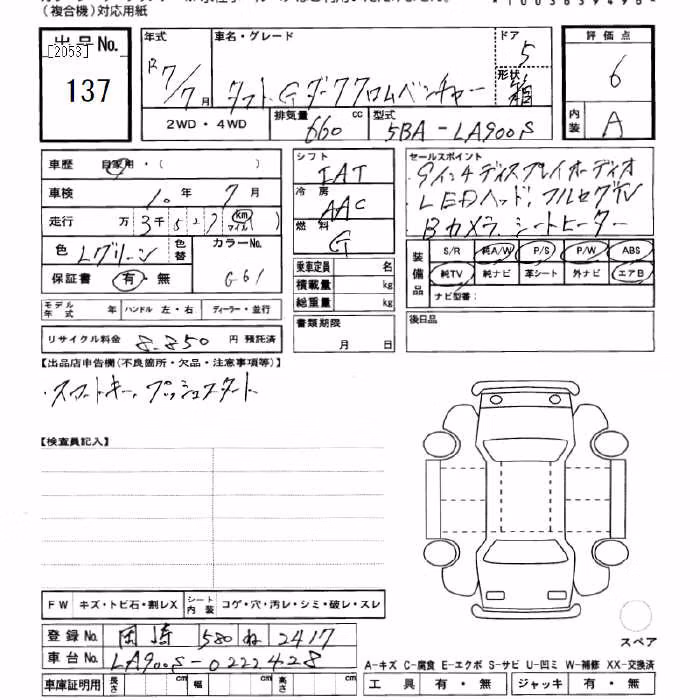 (複合機)対応用紙
出品No.
[2053]
137
年式
R7/7月
車名・グレード
タフト Gダーククロムベンチャー
ドア
5
形状
箱
評価点
6
内装
A
2WD・4WD
排気量 660 cc
型式 5BA-LA900S
車歴 自家用・( )
車検 10年 7月
走行 万3千527 km マイル ( )
色 Lグリーン
色替
カラーNo.
G61
保証書 有・無
モデル年式 年 ハンドル 左・右 ディーラー・並行
リサイクル料金 8,850円 預託済
シフト
IAT
冷房
AAC
燃料
G
乗車定員 名
積載量 kg
総重量 kg
書類期限
月 日
セールスポイント
・9インチディスプレイオーディオ
・LEDヘッド、フルセグTV
・Bカメラ、シートヒーター
装備品
S/R 純A/W P/S P/W ABS
純TV 純ナビ 革シート 外ナビ エアB
ナビ型番:
後日品
【出品店申告欄(不良箇所・欠品・注意事項等)】
・スマートキー、プッシュスタート
【検査員記入】
FW キズ・トビ石・割レX シート内装 コゲ・穴・汚レ・シミ・破レ・スレ
登録No. 岡崎 580 ね 2417
車台No. LA900S-0222428
車庫証明用 長さ cm 幅 cm 高さ cm
スペア
A-キズ C-腐食 E-エクボ S-サビ U-凹ミ W-補修 XX-交換済
工具 有・無 ジャッキ 有・無